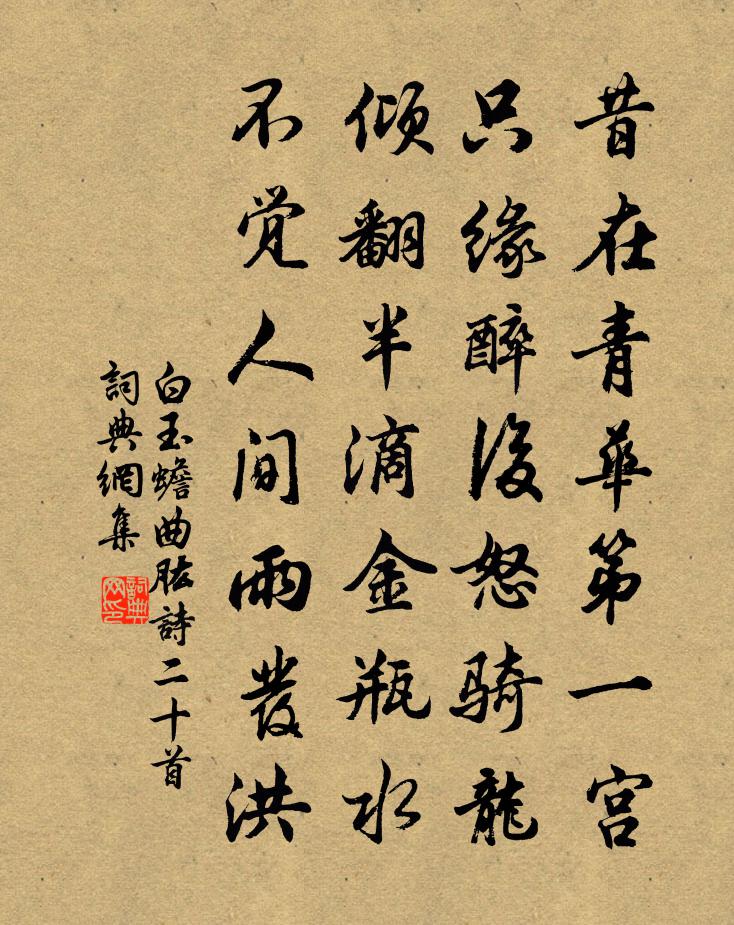 昔在青華第一宮
只緣醉後怒騎龍
傾翻半滴金瓶水
不觉人間雨發洪
白玉蟾曲肱詩二十首
詞典網集
詞典网印